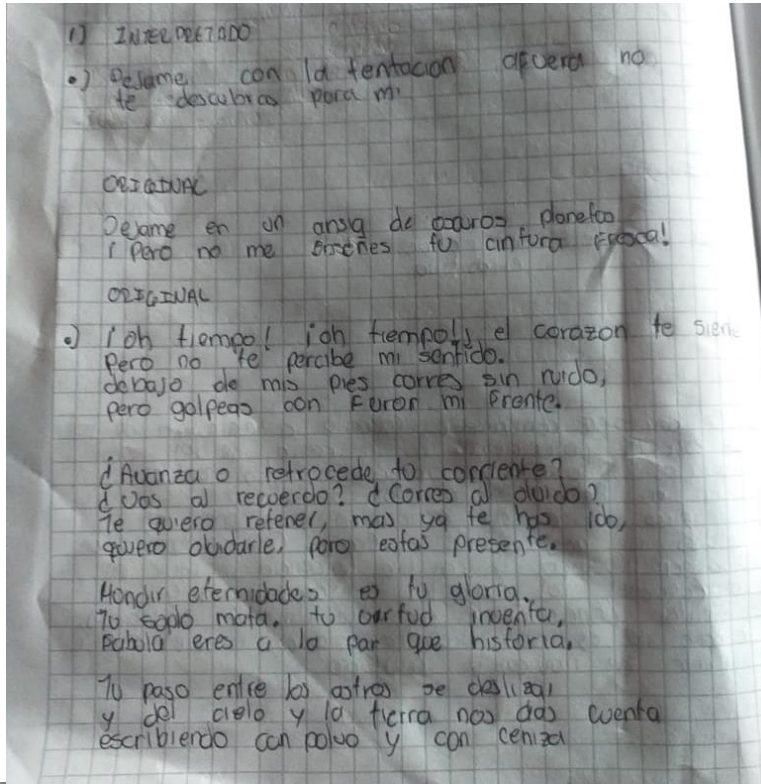 1) INTERPRETADO
•) Dejame con la tentacion afuera no
te descubras para mi
ORIGINAL
Dejame en un ansia de oscuros planetas
¡Pero no me enseñes tu cintura fresca!
ORIGINAL
•) ¡oh tiempo! ¡oh tiempo! el corazon te sien
Pero no te percibe mi sentido.
debajo de mis pies corres sin ruido,
pero golpeas con Furor mi Frente.
¿Avanza o retrocede tu corriente?
¿Vas al recuerdo? ¿Corres al olvido?
Te quiero retener, mas ya te has ido,
quiero olvidarle, pero estas presente.
Hundir eternidades es tu gloria.
Tu soplo mata. tu virtud inventa,
Fabula eres a la par que historia.
Tu paso entre los astros se desliza,
y del cielo y la tierra nos das cuenta
escribiendo con polvo y con ceniza